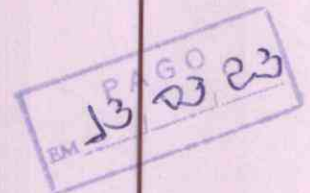 PAGO
EM 13 / 03 / 23